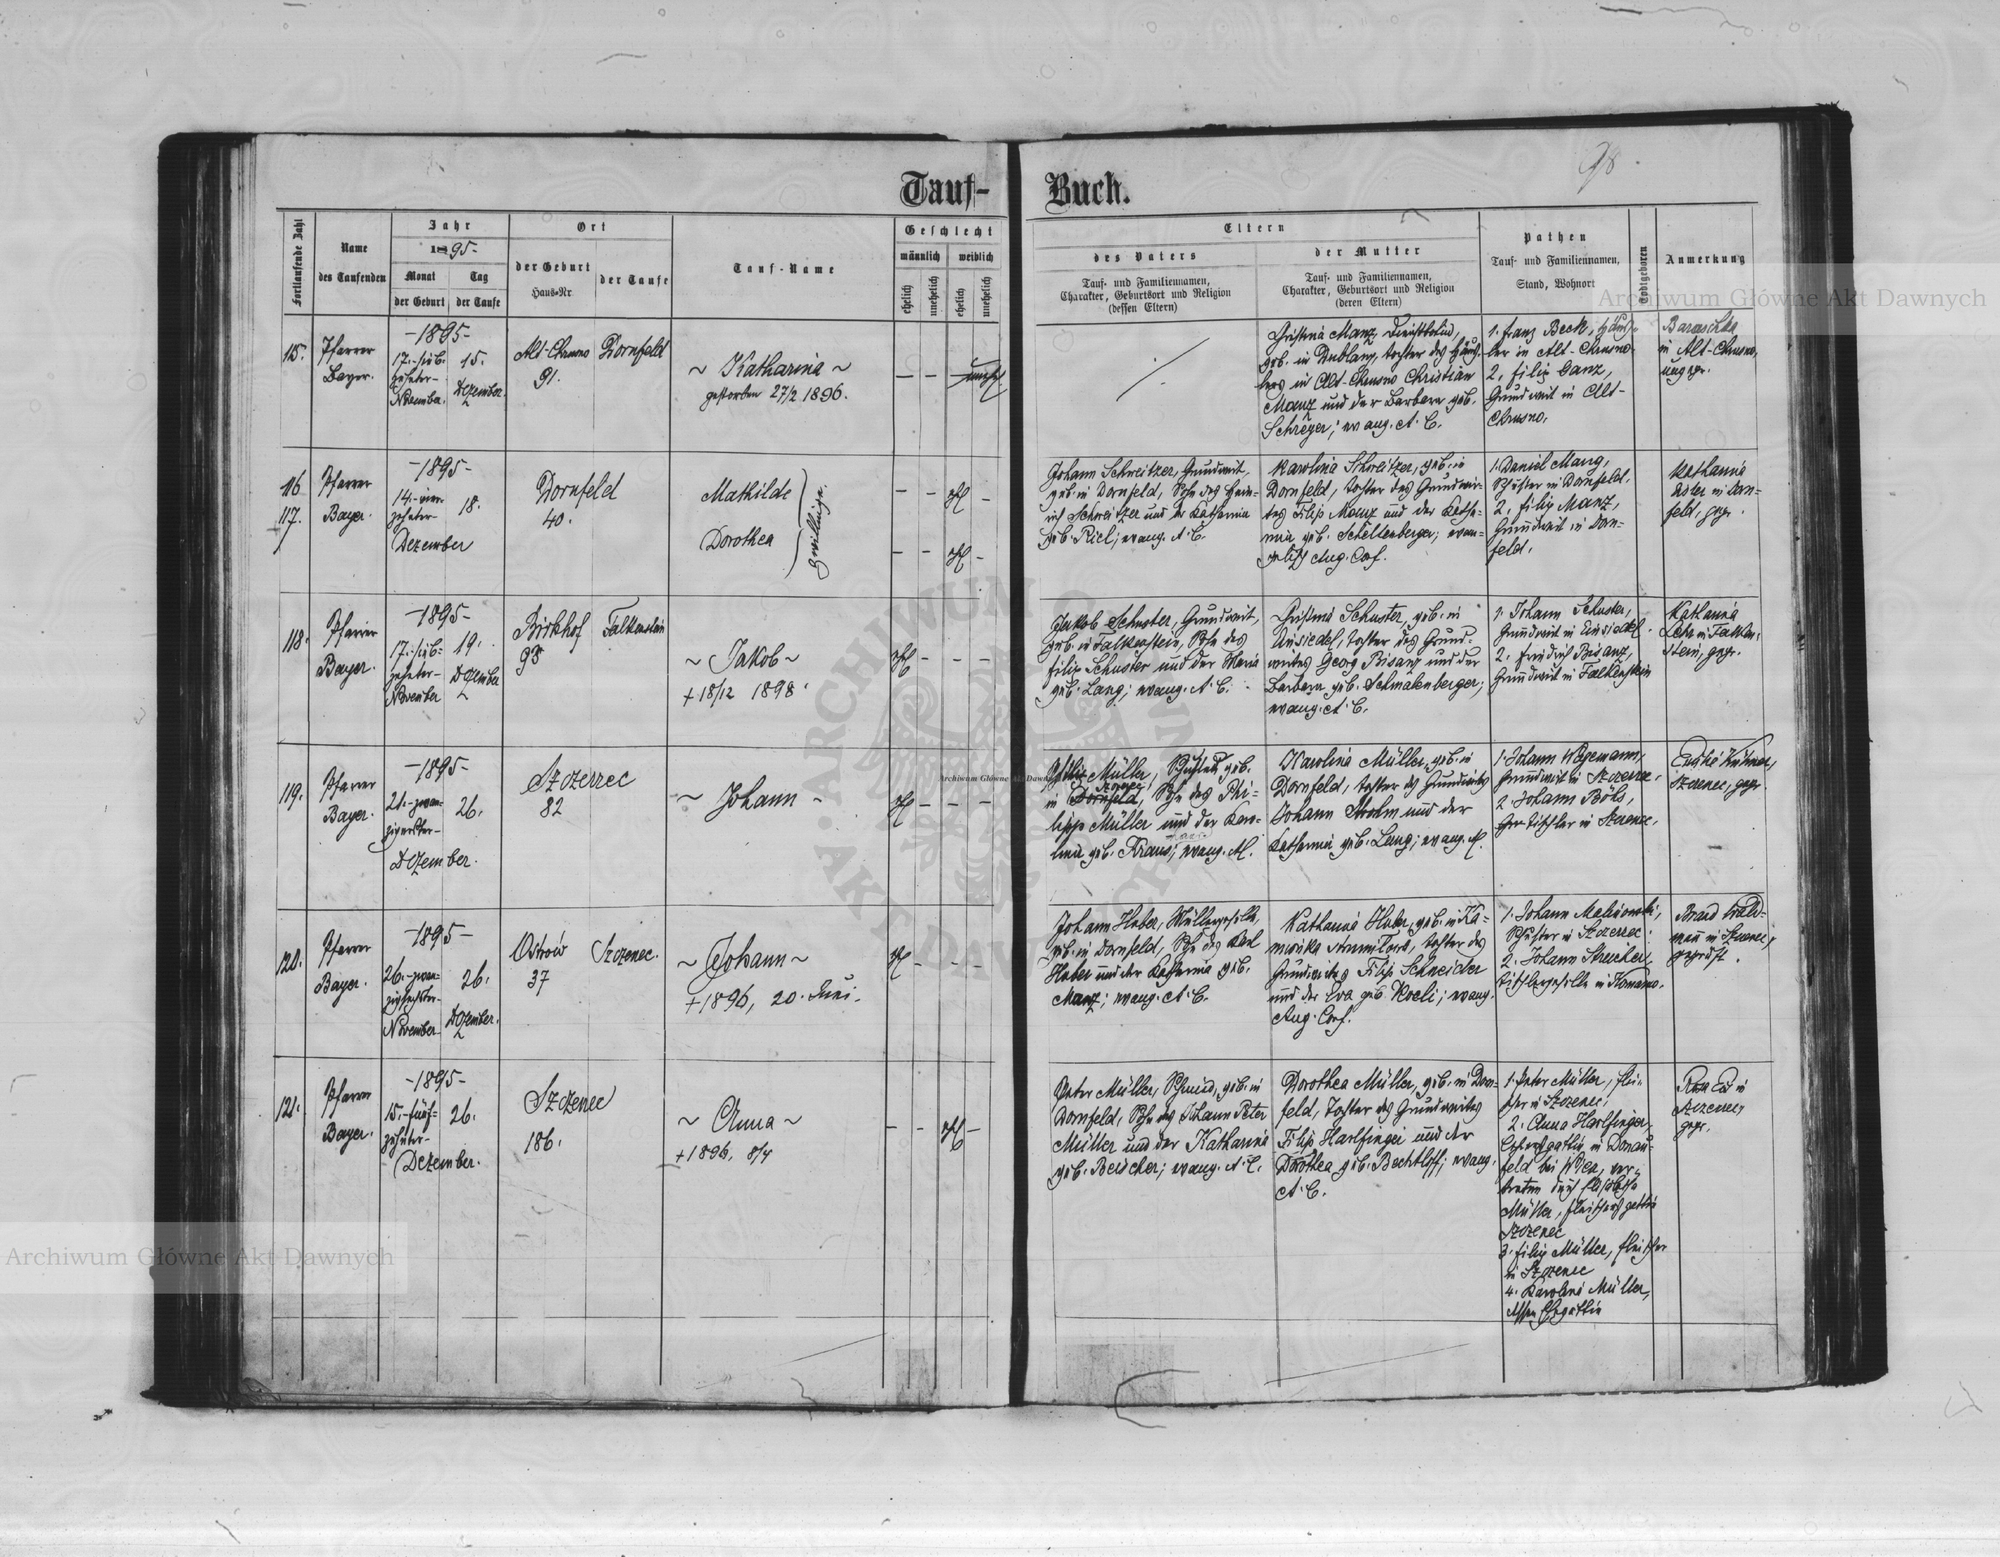 98.
Tauf-
Buch.
Fortlaufende Zahl
Name
des Taufenden
Jahr
1895-
Monat
der Geburt
Tag
der Taufe
Ort
der Geburt
Haus-Nr.
der Taufe
Tauf-Name
Geschlecht
männlich
weiblich
ehelich
unehelich
ehelich
unehelich
Eltern
des Vaters
Tauf- und Familiennamen,
Charakter, Geburtsort und Religion
(dessen Eltern)
der Mutter
Tauf- und Familiennamen,
Charakter, Geburtsort und Religion
(deren Eltern)
Pathen
Tauf- und Familiennamen,
Stand, Wohnort
Todtgeboren
Anmerkung
115.
Pfarrer
Bayer.
-1895-
17.-sieb-
zehnter-
November.
15.
Dezember.
Alt-Chrusno
91.
Dornfeld
~ Katharina ~
gestorben 27/2 1896.
geb. in
Tochter des
lers in Alt-Chrusno Christian
Manz und der Barbara geb.
Schreyer; evang. A. C.
1. Franz Beck,
ler in Alt-Chrusno
2. Filip Ganz,
Grundwirt in Alt-
Chrusno.
in Alt-Chrusno,
116
117.
Pfarrer
Bayer.
-1895-
14.-vier-
zehnter-
Dezember
18.
Dornfeld
40.
Mathilde
Dorothea
Zwillinge.
Johann Schweitzer, Grundwirt,
geb. in Dornfeld, Sohn des Hein-
rich Schweitzer und der Katharina
geb. Riel; evang. A. C.
Karolina Schweitzer, geb. in
Dornfeld, Tochter des Grundwir-
tes Filip Manz und der Katha-
rina geb. Schellenberger; evan-
gelisch Aug. Conf.
1. Daniel Mang,
Schuster in Dornfeld.
2. Filip Manz,
Grundwirt in Dorn-
feld.
Katharina
in Dorn-
feld, gepr.
118.
Pfarrer
Bayer.
-1895-
17.-sieb-
zehnter-
November
19.
Dezember
Birkhof
93
Falkenstein
~ Jakob ~
+ 18/12 1898.
Jakob Schuster, Grundwirt,
geb. in Falkenstein, Sohn des
Filip Schuster und der Maria
geb. Lang; evang. A. C.
Christina Schuster, geb. in
Einsiedel, Tochter des Grund-
wirtes Georg Bisanz und der
Barbara geb. Schmalenberger;
evang. A. C.
1. Johann Schuster,
Grundwirt in Einsiedel.
2. Friedrich Bisanz,
Grundwirt in Falkenstein
Katharina
in Falken-
stein, gepr.
119.
Pfarrer
Bayer.
-1895-
21.-zwan-
zigerster-
Dezember.
26.
Szczerzec
82
~ Johann ~
Müller, geb.
in Dornfeld, Sohn des Phi-
lipp Müller und der Karo-
lina geb. Kraus; evang. AC.
Karolina Müller, geb. in
Dornfeld, Tochter des Grundwirtes
Johann Strohm und der
Katharina geb. Lang; evang. AC.
1. Johann Wegemann,
Grundwirt in Szczerzec.
2. Johann Böhs,
Tischler in Szczerzec.
Szczerzec, gepr.
120.
Pfarrer
Bayer.
-1895-
26.-zwan-
zigsechster-
November
26.
Dezember.
Ostrów
37
Szczerzec.
~ Johann ~
+ 1896, 20. Juni.
Johann Huber, Müllergeselle,
geb. in Dornfeld, Sohn des Karl
Huber und der Katharina geb.
Manz; evang. A. C.
Katharina Huber, geb. in Ka-
Tochter des
Grundwirtes Filip Schneider
und der Eva geb. ; evang.
Aug. Conf.
1. Johann Malinowski,
Schuster in Szczerzec.
2. Johann Streicher,
Tischlergeselle in Komarno.
geprüft.
121.
Pfarrer
Bayer.
-1895-
15.-fünf-
zehnter-
Dezember.
26.
Szczerzec
186.
~ Anna ~
+ 1896, 8/4
Peter Müller, Schmied, geb. in
Dornfeld, Sohn des Johann Peter
Müller und der Katharina
geb. ; evang. A. C.
Dorothea Müller, geb. in Dorn-
feld, Tochter des Grundwirtes
Filip Harlfinger und der
Dorothea geb. Bechtloff; evang.
A. C.
1. Peter Müller, Flei-
scher in Szczerzec,
2. Anna Harlfinger,
in Donau-
feld bei Wien, ver-
treten durch Elisabetha
Müller, Fleischersgattin
Szczerzec
3. Filip Müller, Fleischer
in Szczerzec
4. Karolina Müller,
dessen Ehegattin
in
Szczerzec,
gepr.
Archiwum Główne Akt Dawnych
Archiwum Główne Akt Dawnych
Archiwum Główne Akt Dawnych